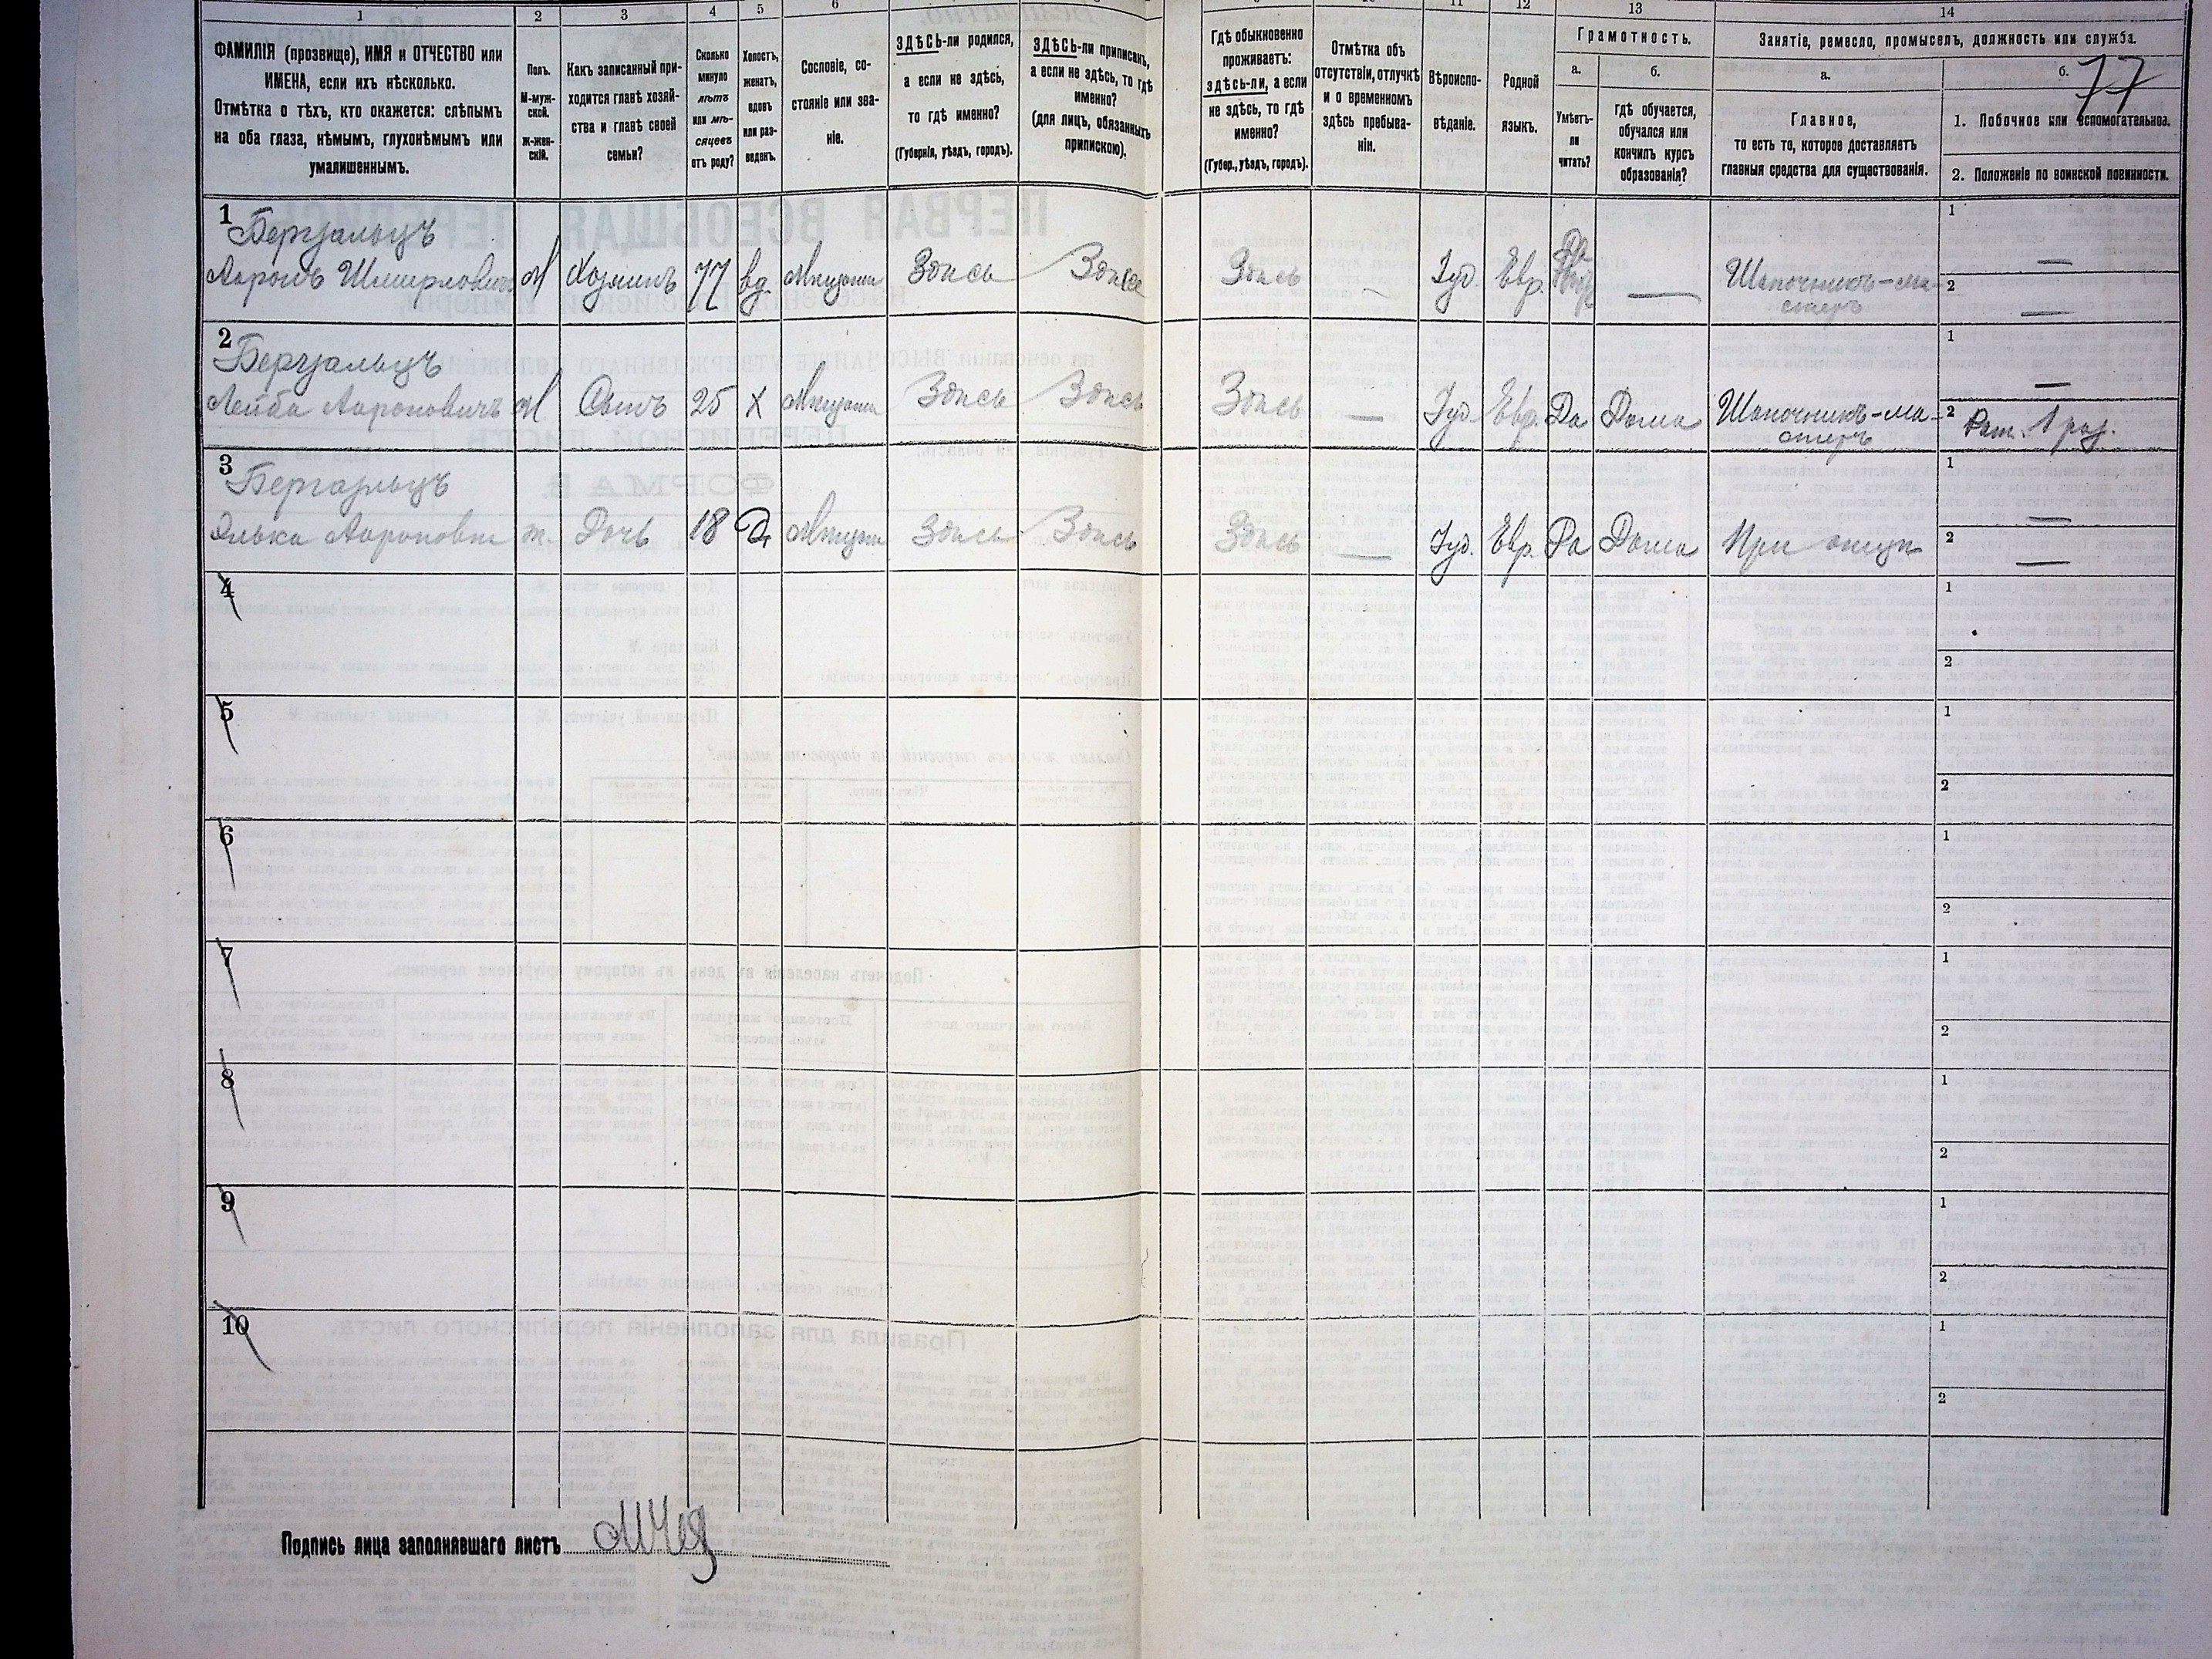 1 2 3 4 5 6 11 12 13 14
ФАМИЛІЯ (прозвище), ИМЯ и ОТЧЕСТВО или
ИМЕНА, если ихъ нѣсколько.
Отмѣтка о тѣхъ, кто окажется: слѣпымъ
на оба глаза, нѣмымъ, глухонѣмымъ или
умалишеннымъ.
Полъ.
М-муж-
ской.
Ж-жен-
скій.
Какъ записанный при-
ходится главѣ хозяй-
ства и главѣ своей
семьи?
Сколько
минуло
лѣтъ
или мѣ-
сяцевъ
отъ роду?
Холостъ,
женатъ,
вдовъ
или раз-
веденъ.
Сословіе, со-
стояніе или зва-
ніе.
ЗДѢСЬ-ли родился,
а если не здѣсь,
то гдѣ именно?
(Губернія, уѣздъ, городъ).
ЗДѢСЬ-ли приписанъ,
а если не здѣсь, то гдѣ
именно?
(для лицъ, обязанныхъ
припискою).
Гдѣ обыкновенно
проживаетъ:
здѣсь-ли, а если
не здѣсь, то гдѣ
именно?
(Губер., уѣздъ, городъ).
Отмѣтка объ
отсутствіи, отлучкѣ
и о временномъ
здѣсь пребыва-
ніи.
Вѣроиспо-
вѣданіе.
Родной
языкъ.
Грамотность.
а. б.
Умѣетъ-
ли
читать?
Гдѣ обучается,
обучался или
кончилъ курсъ
образованія?
Занятіе, ремесло, промыселъ, должность или служба.
а. б. 77
Главное,
то есть то, которое доставляетъ
главныя средства для существованія.
1. Побочное или вспомогательное.
2. Положеніе по воинской повинности.
1 Бергзальцъ
Ааронъ Шмерловичъ М Хозяинъ 77 вд. Мѣщанин Здѣсь Здѣсь Здѣсь — Іуд. Евр. — Шапочникъ-ма-
стеръ
1 —
2 —
2 Бергзальцъ
Лейба Аароновичъ М Сынъ 25 Х Мѣщанин Здѣсь Здѣсь Здѣсь — Іуд. Евр. Да Дома Шапочникъ-ма-
стеръ
1 —
2 Рат. 1 раз.
3
Аароновн ж. Дочь 18 Д. Мѣщан Здѣсь Здѣсь Здѣсь — Іуд. Евр. Да Дома При отцѣ
1 —
2 —
4 1
2
5 1
2
6 1
2
7 1
2
8 1
2
9 1
2
10 1
2
Подпись лица заполнявшаго листъ